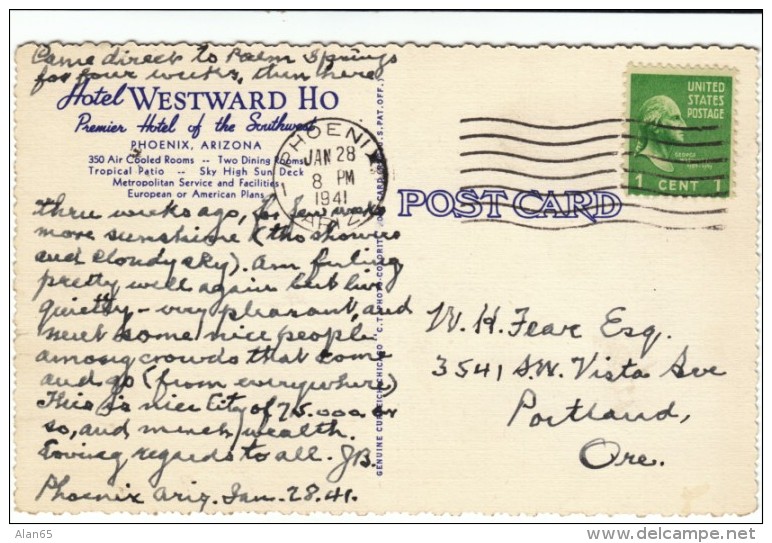 Came direct to Palm Springs
for four weeks, then here
Hotel WESTWARD HO
Premier Hotel of the Southwest
PHOENIX, ARIZONA
350 Air Cooled Rooms -- Two Dining Rooms
Tropical Patio -- Sky High Sun Deck
Metropolitan Service and Facilities
European or American Plans
three weeks ago, for few weeks
more sunshine (tho showers
and cloudy sky). Am feeling
pretty well again but live
quietly - very pleasant, and
meet some nice people
among crowds that come
and go (from everywhere)
This is nice City of 75.000 or
so, and much wealth.
Loving regards to all. JB.
Phoenix Ariz. Jan. 28. 41.
PHOENIX
JAN 28
8 PM
1941
ARIZ.
UNITED
STATES
POSTAGE
GEORGE
WASHINGTON
1 CENT 1
POST CARD
GENUINE CURTEICH-CHICAGO "C.T. PHOTO-COLORIT" POST CARD (REG. U.S. PAT. OFF.)
W. H. Fear Esq.
3541 S.W. Vista Ave
Portland,
Ore.
Alan65
www.delcampe.net